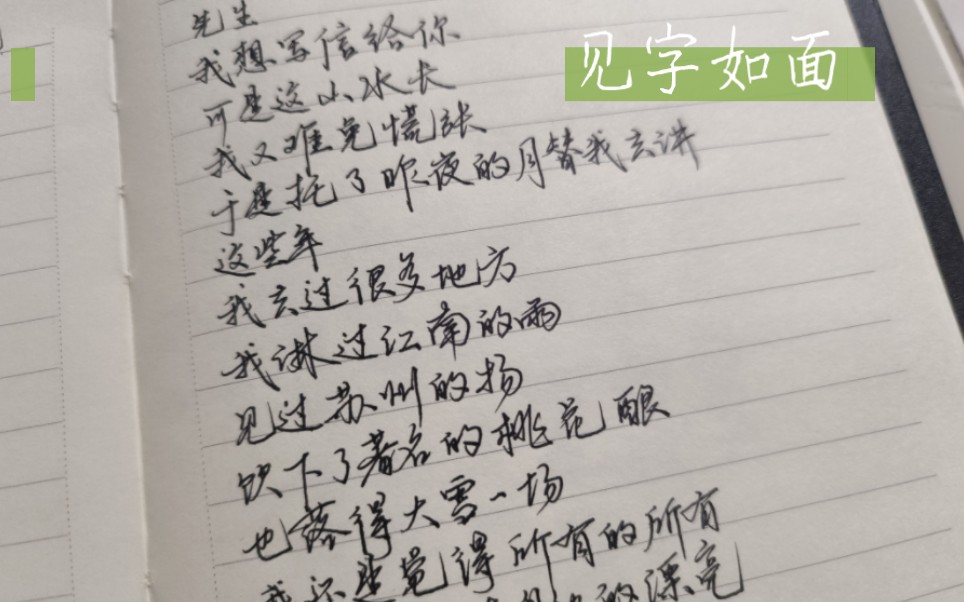 见字如面
先生
我想写信给你
可是这山水长
我又难免慌张
于是托了昨夜的月替我去讲
这些年
我去过很多地方
我淋过江南的雨
见过苏州的杨
饮下了著名的桃花酿
也落得大雪一场
我还是觉得所有的所有
的漂亮